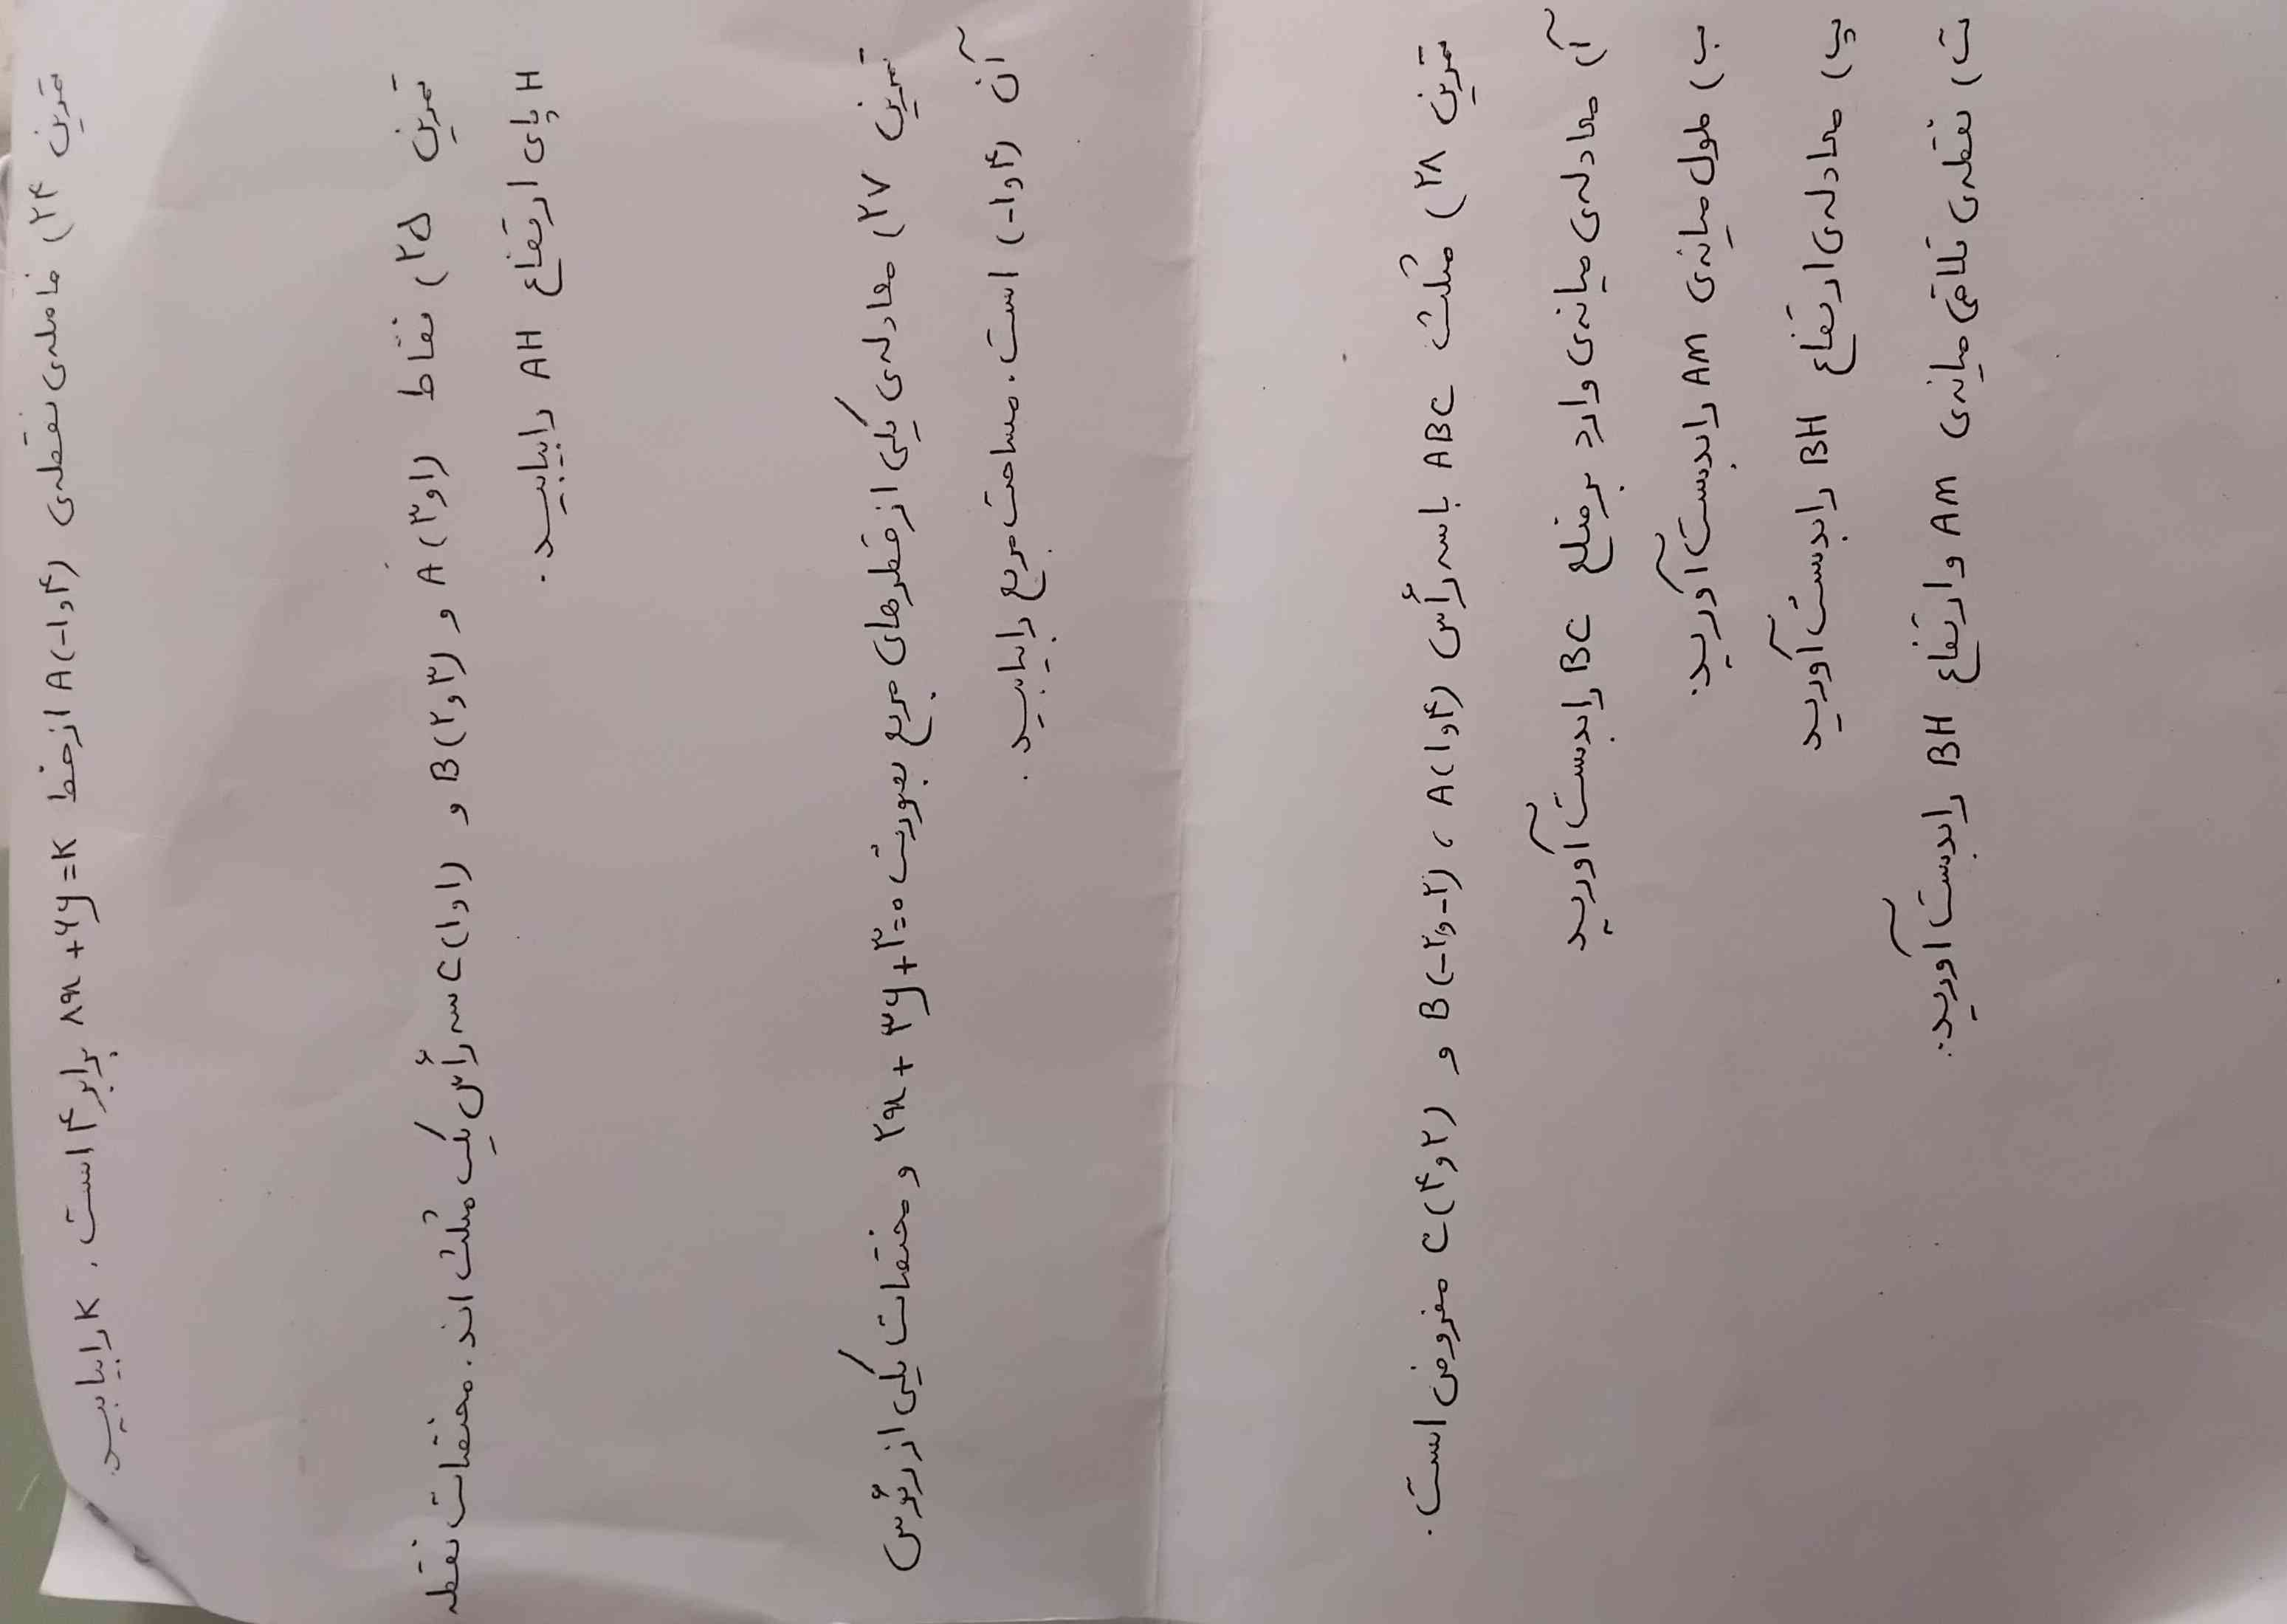 تمرین ۲۴) فاصله‌ی نقطه‌ی A(-۱و۴) از خط ۸x+۶y=K برابر ۴ است. K را بیابید.
تمرین ۲۵) نقاط A(۳و۱) و B(۲و۳) و C(۱و۱) سه رأس یک مثلث اند. مختصات نقطه
H پای ارتفاع AH را بیابید.
تمرین ۲۷) معادله‌ی یکی از قطرهای مربع بصورت ۲x+۳y+۳=۰ و مختصات یکی از رئوس
آن (-۱و۴) است. مساحت مربع را بیابید.
تمرین ۲۸) مثلث ABC با سه رأس A(۱و۴) ، B(-۲و-۲) و C(۴و۲) مفروض است.
آ) معادله‌ی میانه‌ی وارد بر ضلع BC را بدست آورید
ب) طول میانه‌ی AM را بدست آورید.
پ) معادله‌ی ارتفاع BH را بدست آورید
ت) نقطه‌ی تلاقی میانه‌ی AM و ارتفاع BH را بدست آورید.